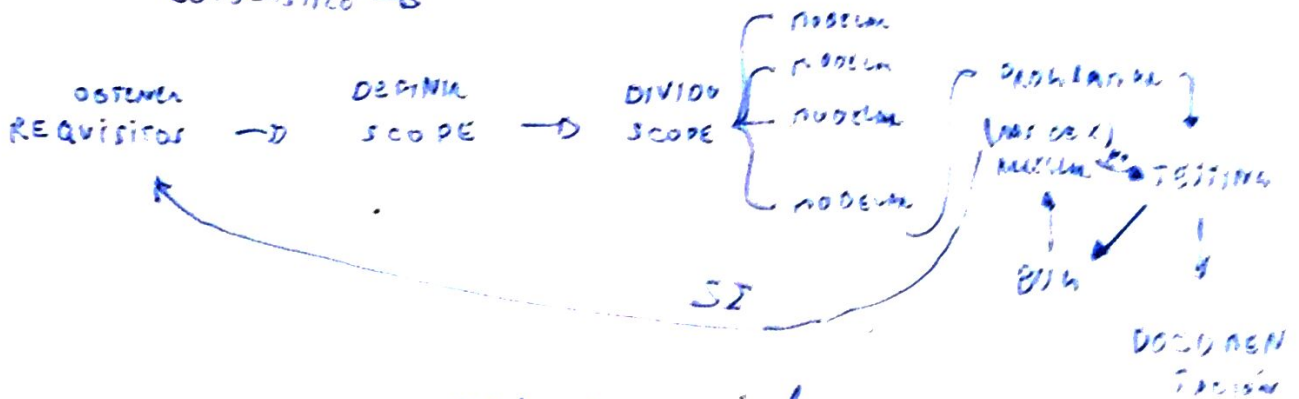 OBTENER
REQUISITOS
DEFINIR
SCOPE
DIVIDO
SCOPE
MODELAR
MODELAR
MODELAR
MODELAR
PROGRAMAR
TESTING
BUG
SI
DOCUMEN
TACIÓN